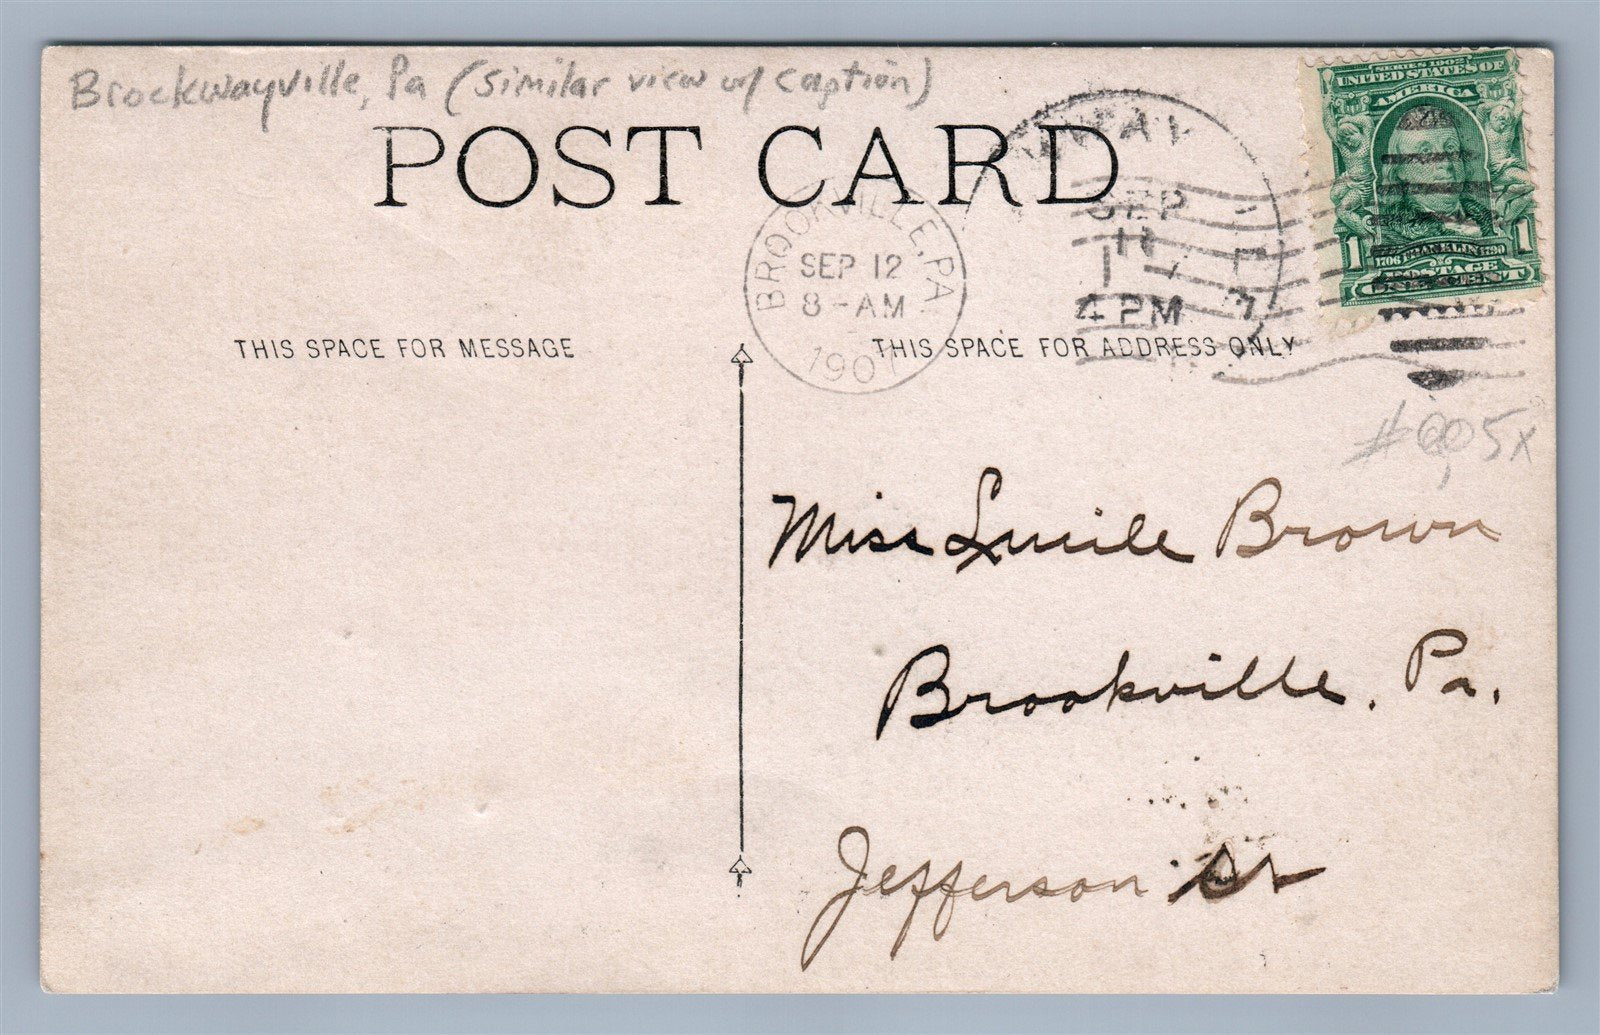 Brockwayville, Pa (similar view w/ caption)
POST CARD
BROOKVILLE, PA
SEP 12
8-AM
1907
SEP
11
4 PM
SERIES 1902
UNITED STATES OF
AMERICA
1706 FRANKLIN 1790
1 1
POSTAGE
ONE CENT
THIS SPACE FOR MESSAGE
THIS SPACE FOR ADDRESS ONLY
Miss Lucile Brown
Brookville, Pa.
Jefferson St